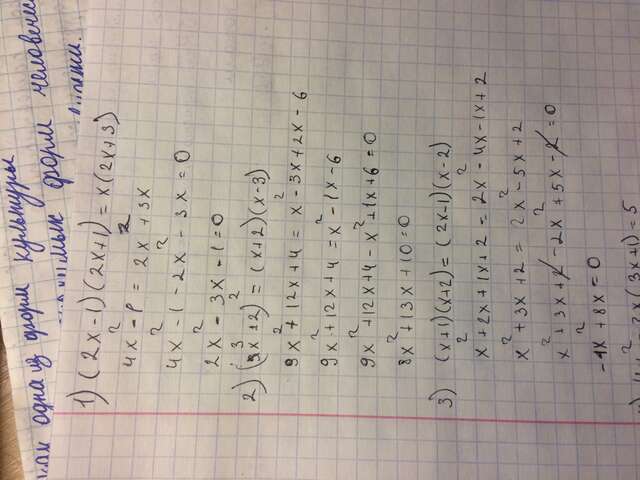 как одна из форм культуры
форм человечес
1) (2x-1)(2x+1) = x(2x+3)
4x² - 1 = 2x² + 3x
4x² - 1 - 2x² - 3x = 0
2x² - 3x - 1 = 0
2) (3x+2)² = (x+2)(x-3)
9x² + 12x + 4 = x² - 3x + 2x - 6
9x² + 12x + 4 = x² - 1x - 6
9x² + 12x + 4 - x² + 1x + 6 = 0
8x² + 13x + 10 = 0
3) (x+1)(x+2) = (2x-1)(x-2)
x² + 2x + 1x + 2 = 2x² - 4x - 1x + 2
x² + 3x + 2 = 2x² - 5x + 2
x² + 3x + 2 - 2x² + 5x - 2 = 0
-4x² + 8x = 0
x(3x+1) = 5